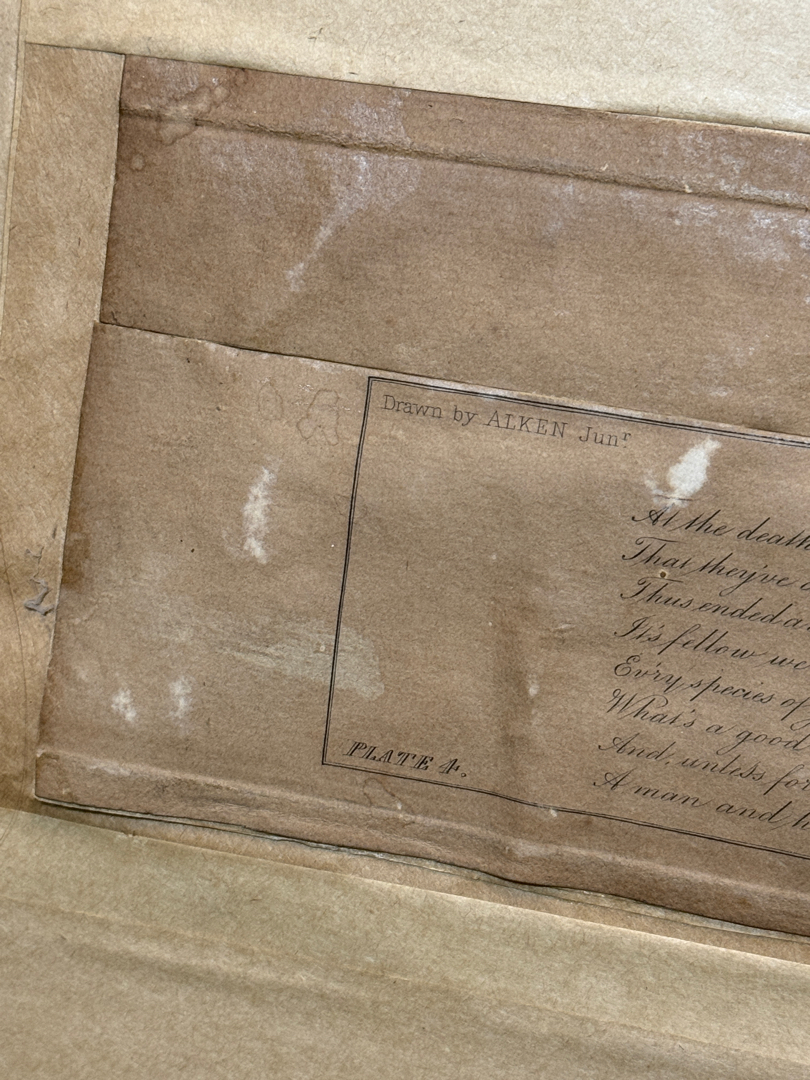 Drawn by ALKEN Junr
At the death
That they've
Thus ended a
It's fellow we
Ev'ry species of
What's a good
And, unless for
A man and h
PLATE 4.